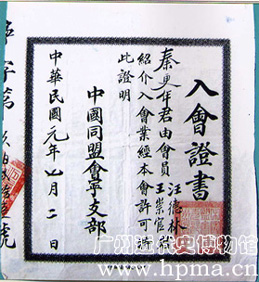 入會證書
秦更年君由會員
汪德林
王崇官
紹介入會業經本會許可特
此證明
中國同盟會寧支部
中華民國元年七月二日
字第
號
广州近代史博物馆
www.hpma.cn